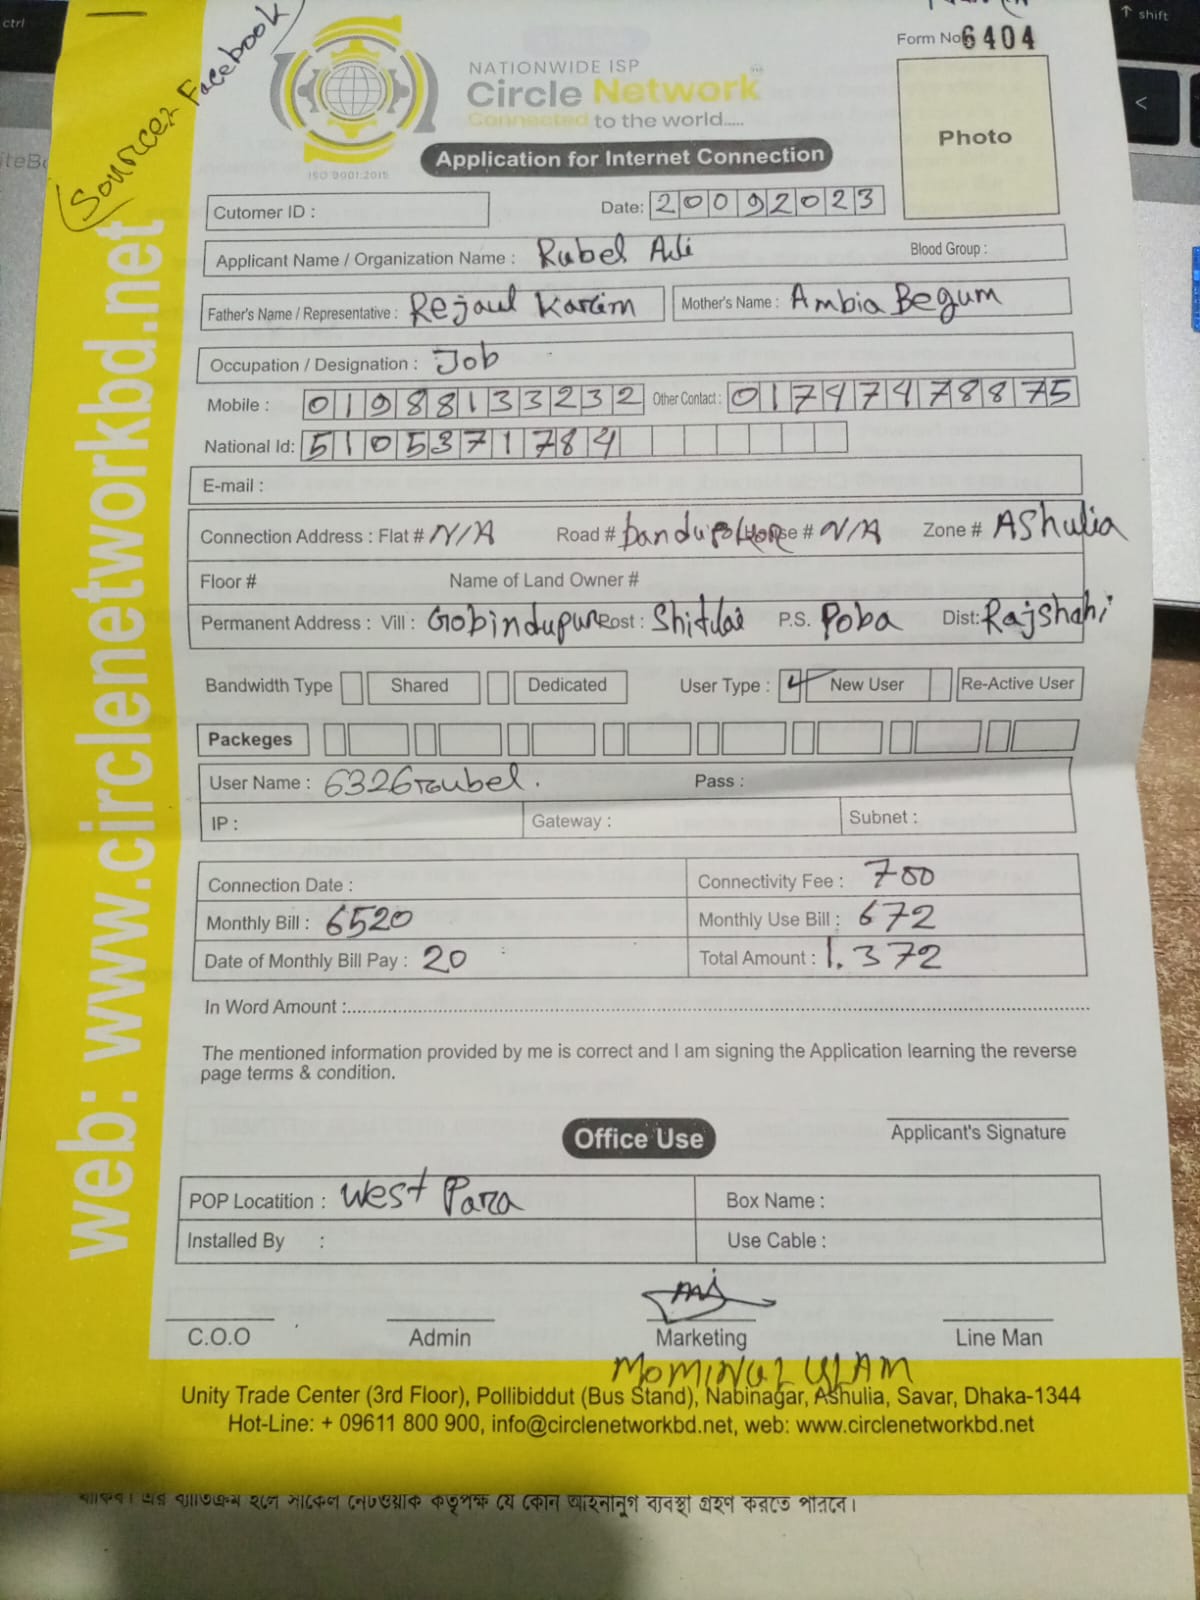 ctrl
shift
<
Source: Facebook
Form No 6404
NATIONWIDE ISP
Circle Network
Connected to the world.....
ISO 9001:2015
Photo
Application for Internet Connection
Cutomer ID :
Date: 20092023
Applicant Name / Organization Name : Rubel Ali Blood Group :
Father's Name / Representative : Rejaul Karim Mother's Name : Ambia Begum
Occupation / Designation : Job
Mobile : 01988133232 Other Contact : 01747478875
National Id: 5105371784
E-mail :
Connection Address : Flat # N/A Road # House # N/A Zone # AShulia
Floor # Name of Land Owner #
Permanent Address : Vill : Gobindupur Post : Shitlai P.S. Poba Dist: Rajshahi
Bandwidth Type Shared Dedicated User Type : New User Re-Active User
Packeges
User Name : 6326rubel. Pass :
IP : Gateway : Subnet :
Connection Date : Connectivity Fee : 700
Monthly Bill : 6520 Monthly Use Bill : 672
Date of Monthly Bill Pay : 20 Total Amount : 1.372
In Word Amount :
The mentioned information provided by me is correct and I am signing the Application learning the reverse
page terms & condition.
Applicant's Signature
Office Use
POP Locatition : West Para Box Name :
Installed By : Use Cable :
C.O.O Admin Marketing Line Man
MOMINUL ISLAM
Unity Trade Center (3rd Floor), Pollibiddut (Bus Stand), Nabinagar, Ashulia, Savar, Dhaka-1344
Hot-Line: + 09611 800 900, info@circlenetworkbd.net, web: www.circlenetworkbd.net
web: www.circlenetworkbd.net
থাকিব। এর ব্যতিক্রম হলে সার্কেল নেটওয়ার্ক কর্তৃপক্ষ যে কোন আইনানুগ ব্যবস্থা গ্রহণ করতে পারিবে।